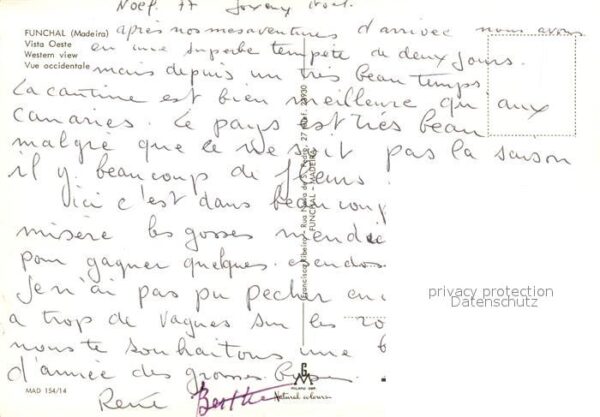 Noël 77 Joyeux Noël.
FUNCHAL (Madeira)
Vista Oeste
Western view
Vue occidentale
après nos mesaventures d'arrivée nous avons
eu une superbe tempête de deux jours.
mais depuis un très beau temps
La cantine est bien meilleure qu'aux
canaries. Le pays est très beau
malgré que ce ne soit pas la saison
il y beaucoup de fleurs.
Ici c'est dans beaucoup
misère les gosses mendie
pour gagner quelques escudos.
Je n'ai pas pu pecher
a trop de vagues sur les ro
nous te souhaitons une b
d'année des grosses bises
René Berthe
Francisco Ribeiro - Rua Nova de S. Pedro, 27
FUNCHAL - MADEIRA
MAD 154/14
GM
MILANO
Natural colours
privacy protection
Datenschutz